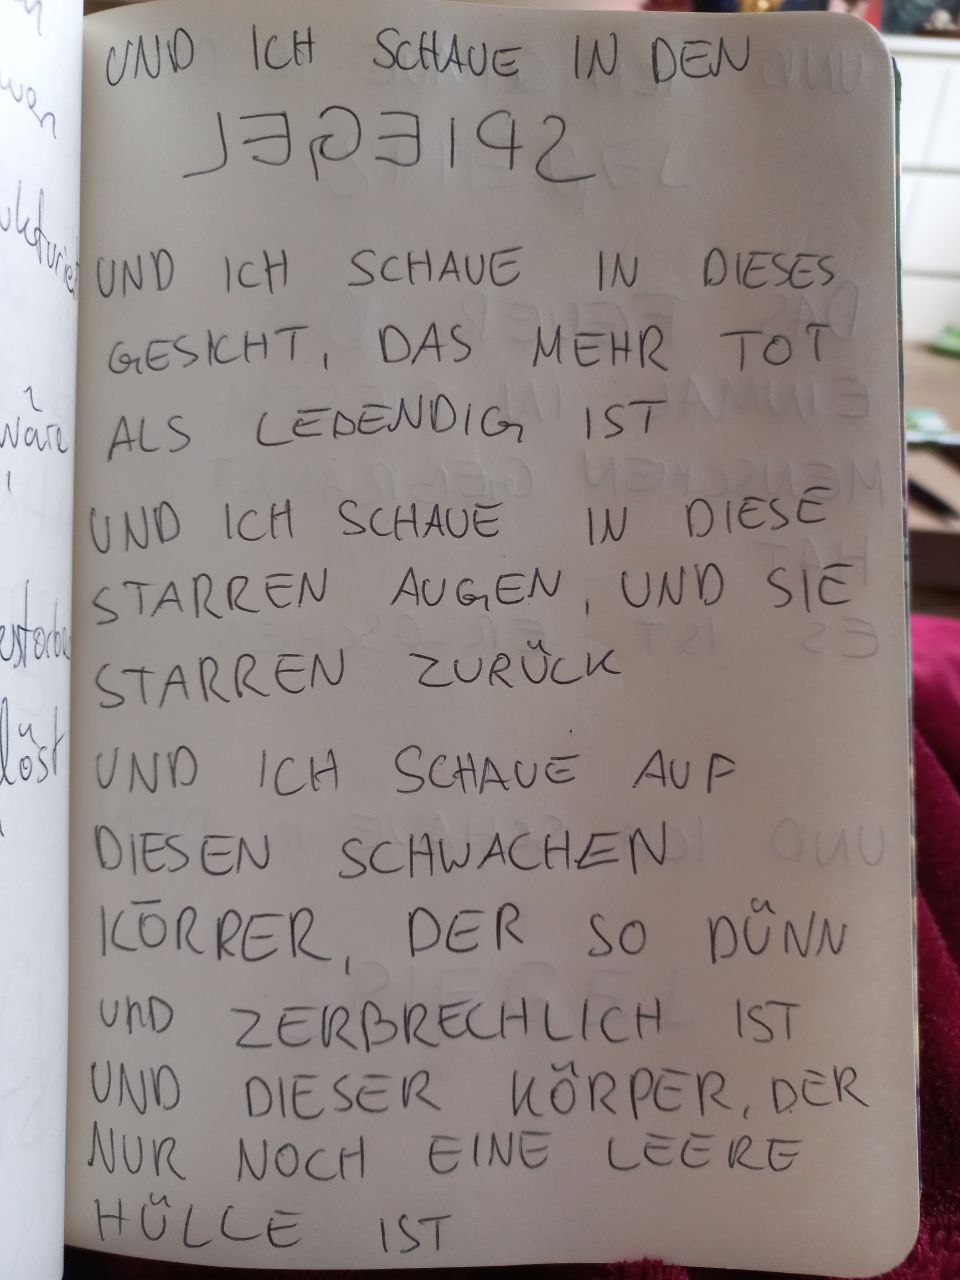 UND ICH SCHAUE IN DEN
SPIEGEL
UND ICH SCHAUE IN DIESES
GESICHT, DAS MEHR TOT
ALS LEBENDIG IST
UND ICH SCHAUE IN DIESE
STARREN AUGEN, UND SIE
STARREN ZURÜCK
UND ICH SCHAUE AUF
DIESEN SCHWACHEN
KÖRPER, DER SO DÜNN
UND ZERBRECHLICH IST
UND DIESER KÖRPER, DER
NUR NOCH EINE LEERE
HÜLLE IST
wäre
löst